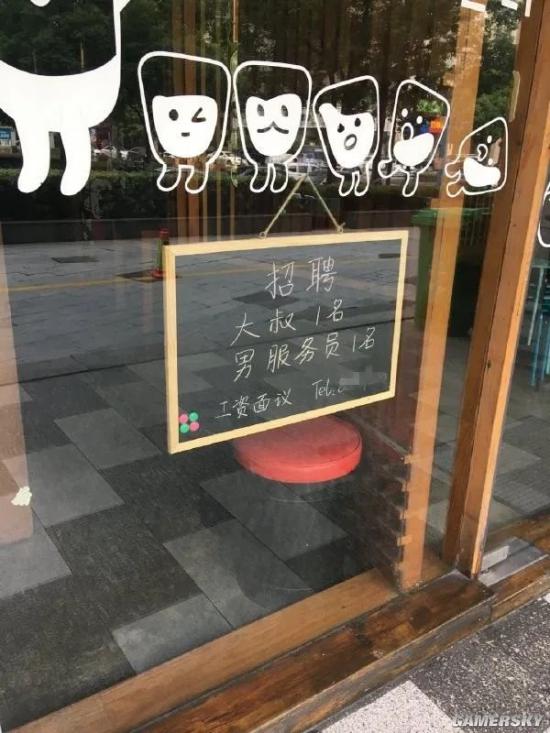 招聘
大叔1名
男服务员1名
工资面议 Tel:
GAMERSKY